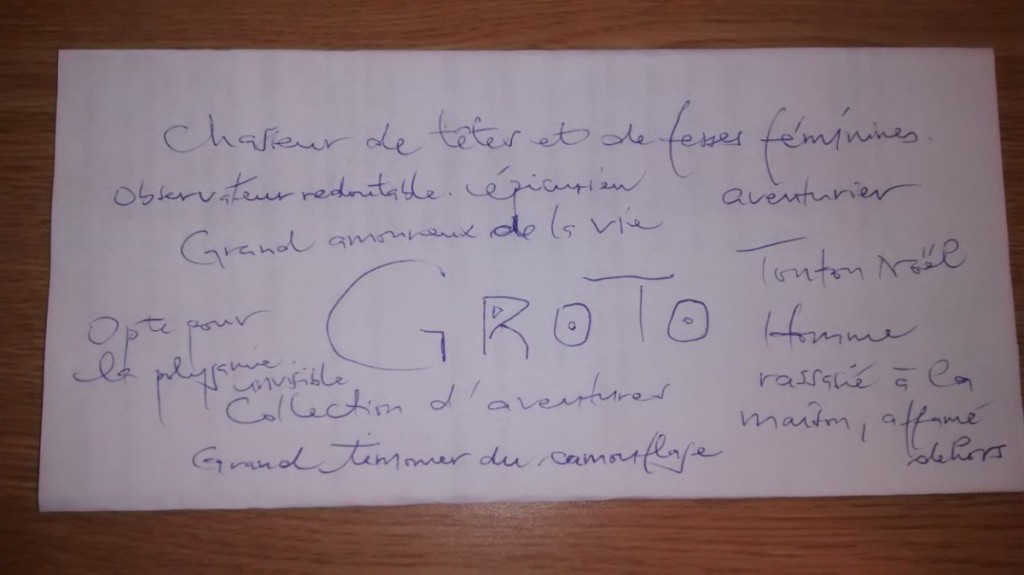 Chasseur de têtes et de fesses féminines.
Observateur redoutable. épicurien aventurier
Grand amoureux de la vie
Tonton Noël
GROTO
Opte pour
la polygamie
invisible
Homme
rassasié à la
maison, affamé
dehors
Collection d'aventures
Grand du camouflage